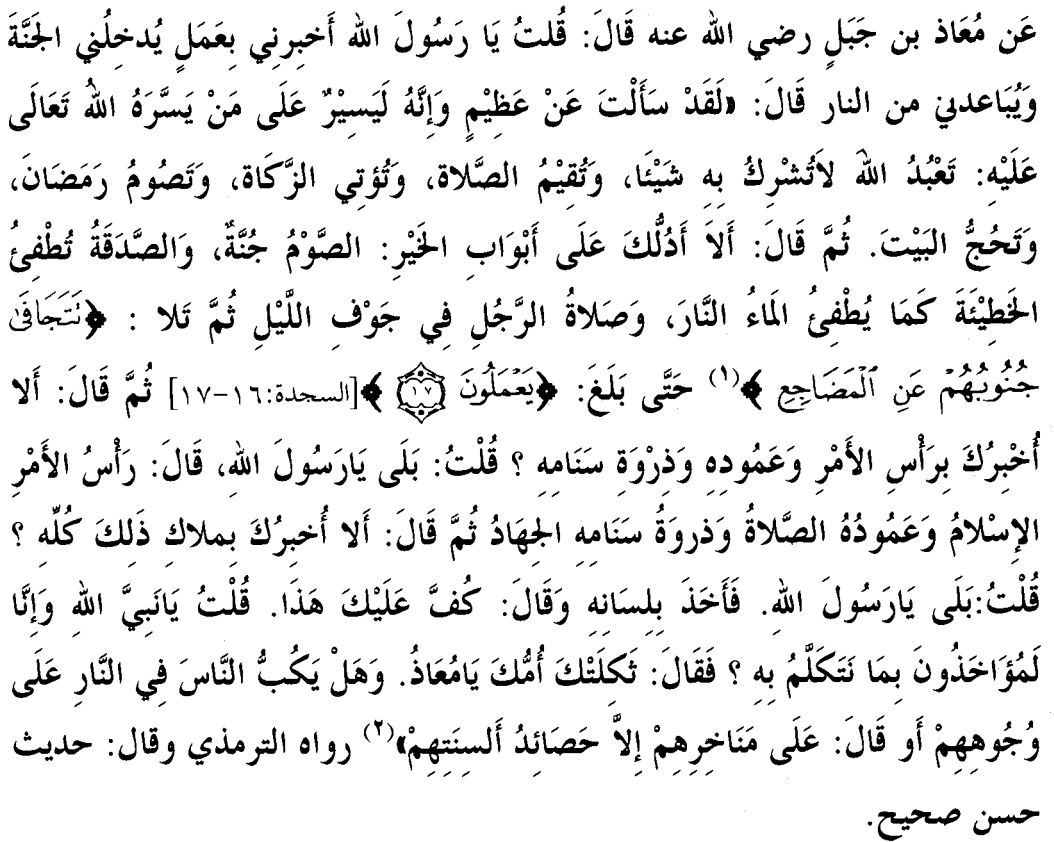 عَن مُعَاذ بن جَبَلٍ رضي الله عنه قَالَ: قُلتُ يَا رَسُولَ الله أَخبِرنِي بِعَمَلٍ يُدخِلُنِي الجَنَّةَ
وَيُبَاعدنِي من النار قَالَ: «لَقَدْ سَأَلْتَ عَنْ عَظِيْمٍ وَإِنَّهُ لَيَسِيْرٌ عَلَى مَنْ يَسَّرَهُ اللهُ تَعَالَى
عَلَيْهِ: تَعْبُدُ اللهَ لاَتُشْرِكُ بِهِ شَيْئَا، وَتُقِيْمُ الصَّلاة، وَتُؤتِي الزَّكَاة، وَتَصُومُ رَمَضَانَ،
وَتَحُجُّ البَيْتَ. ثُمَّ قَالَ: أَلاَ أَدُلُّكَ عَلَى أَبْوَابِ الخَيْرِ: الصَّوْمُ جُنَّةٌ، وَالصَّدَقَةُ تُطْفِئُ
الخَطِيْئَةَ كَمَا يُطْفِئُ المَاءُ النَّارَ، وَصَلاةُ الرَّجُلِ فِي جَوْفِ اللَّيْلِ ثُمَّ تَلا : ﴿نَتَجَافَىٰ
جُنُوبُهُمْ عَنِ ٱلْمَضَاجِعِ ﴾(١) حَتَّى بَلَغَ: ﴿يَعْمَلُونَ ١٧﴾[السجدة:١٦-١٧] ثُمَّ قَالَ: أَلا
أُخْبِرُكَ بِرَأْسِ الأَمْرِ وَعَمُودِهِ وَذِرْوَةِ سَنَامِهِ ؟ قُلْتُ: بَلَى يَارَسُولَ اللهِ، قَالَ: رَأْسُ الأَمْرِ
الإِسْلامُ وَعَمُودُهُ الصَّلاةُ وَذروَةُ سَنَامِهِ الجِهَادُ ثُمَّ قَالَ: أَلا أُخبِرُكَ بِملاكِ ذَلكَ كُلِّهِ ؟
قُلْتُ:بَلَى يَارَسُولَ اللهِ. فَأَخَذَ بِلِسَانِهِ وَقَالَ: كُفَّ عَلَيْكَ هَذَا. قُلْتُ يَانَبِيَّ اللهِ وَإِنَّا
لَمُؤَاخَذُونَ بِمَا نَتَكَلَّمُ بِهِ ؟ فَقَالَ: ثَكِلَتْكَ أُمُّكَ يَامُعَاذُ. وَهَلْ يَكُبُّ النَّاسَ فِي النَّارِ عَلَى
وُجُوهِهِمْ أَو قَالَ: عَلَى مَنَاخِرِهِمْ إِلاَّ حَصَائِدُ أَلسِنَتِهِمْ»(٢) رواه الترمذي وقال: حديث
حسن صحيح.